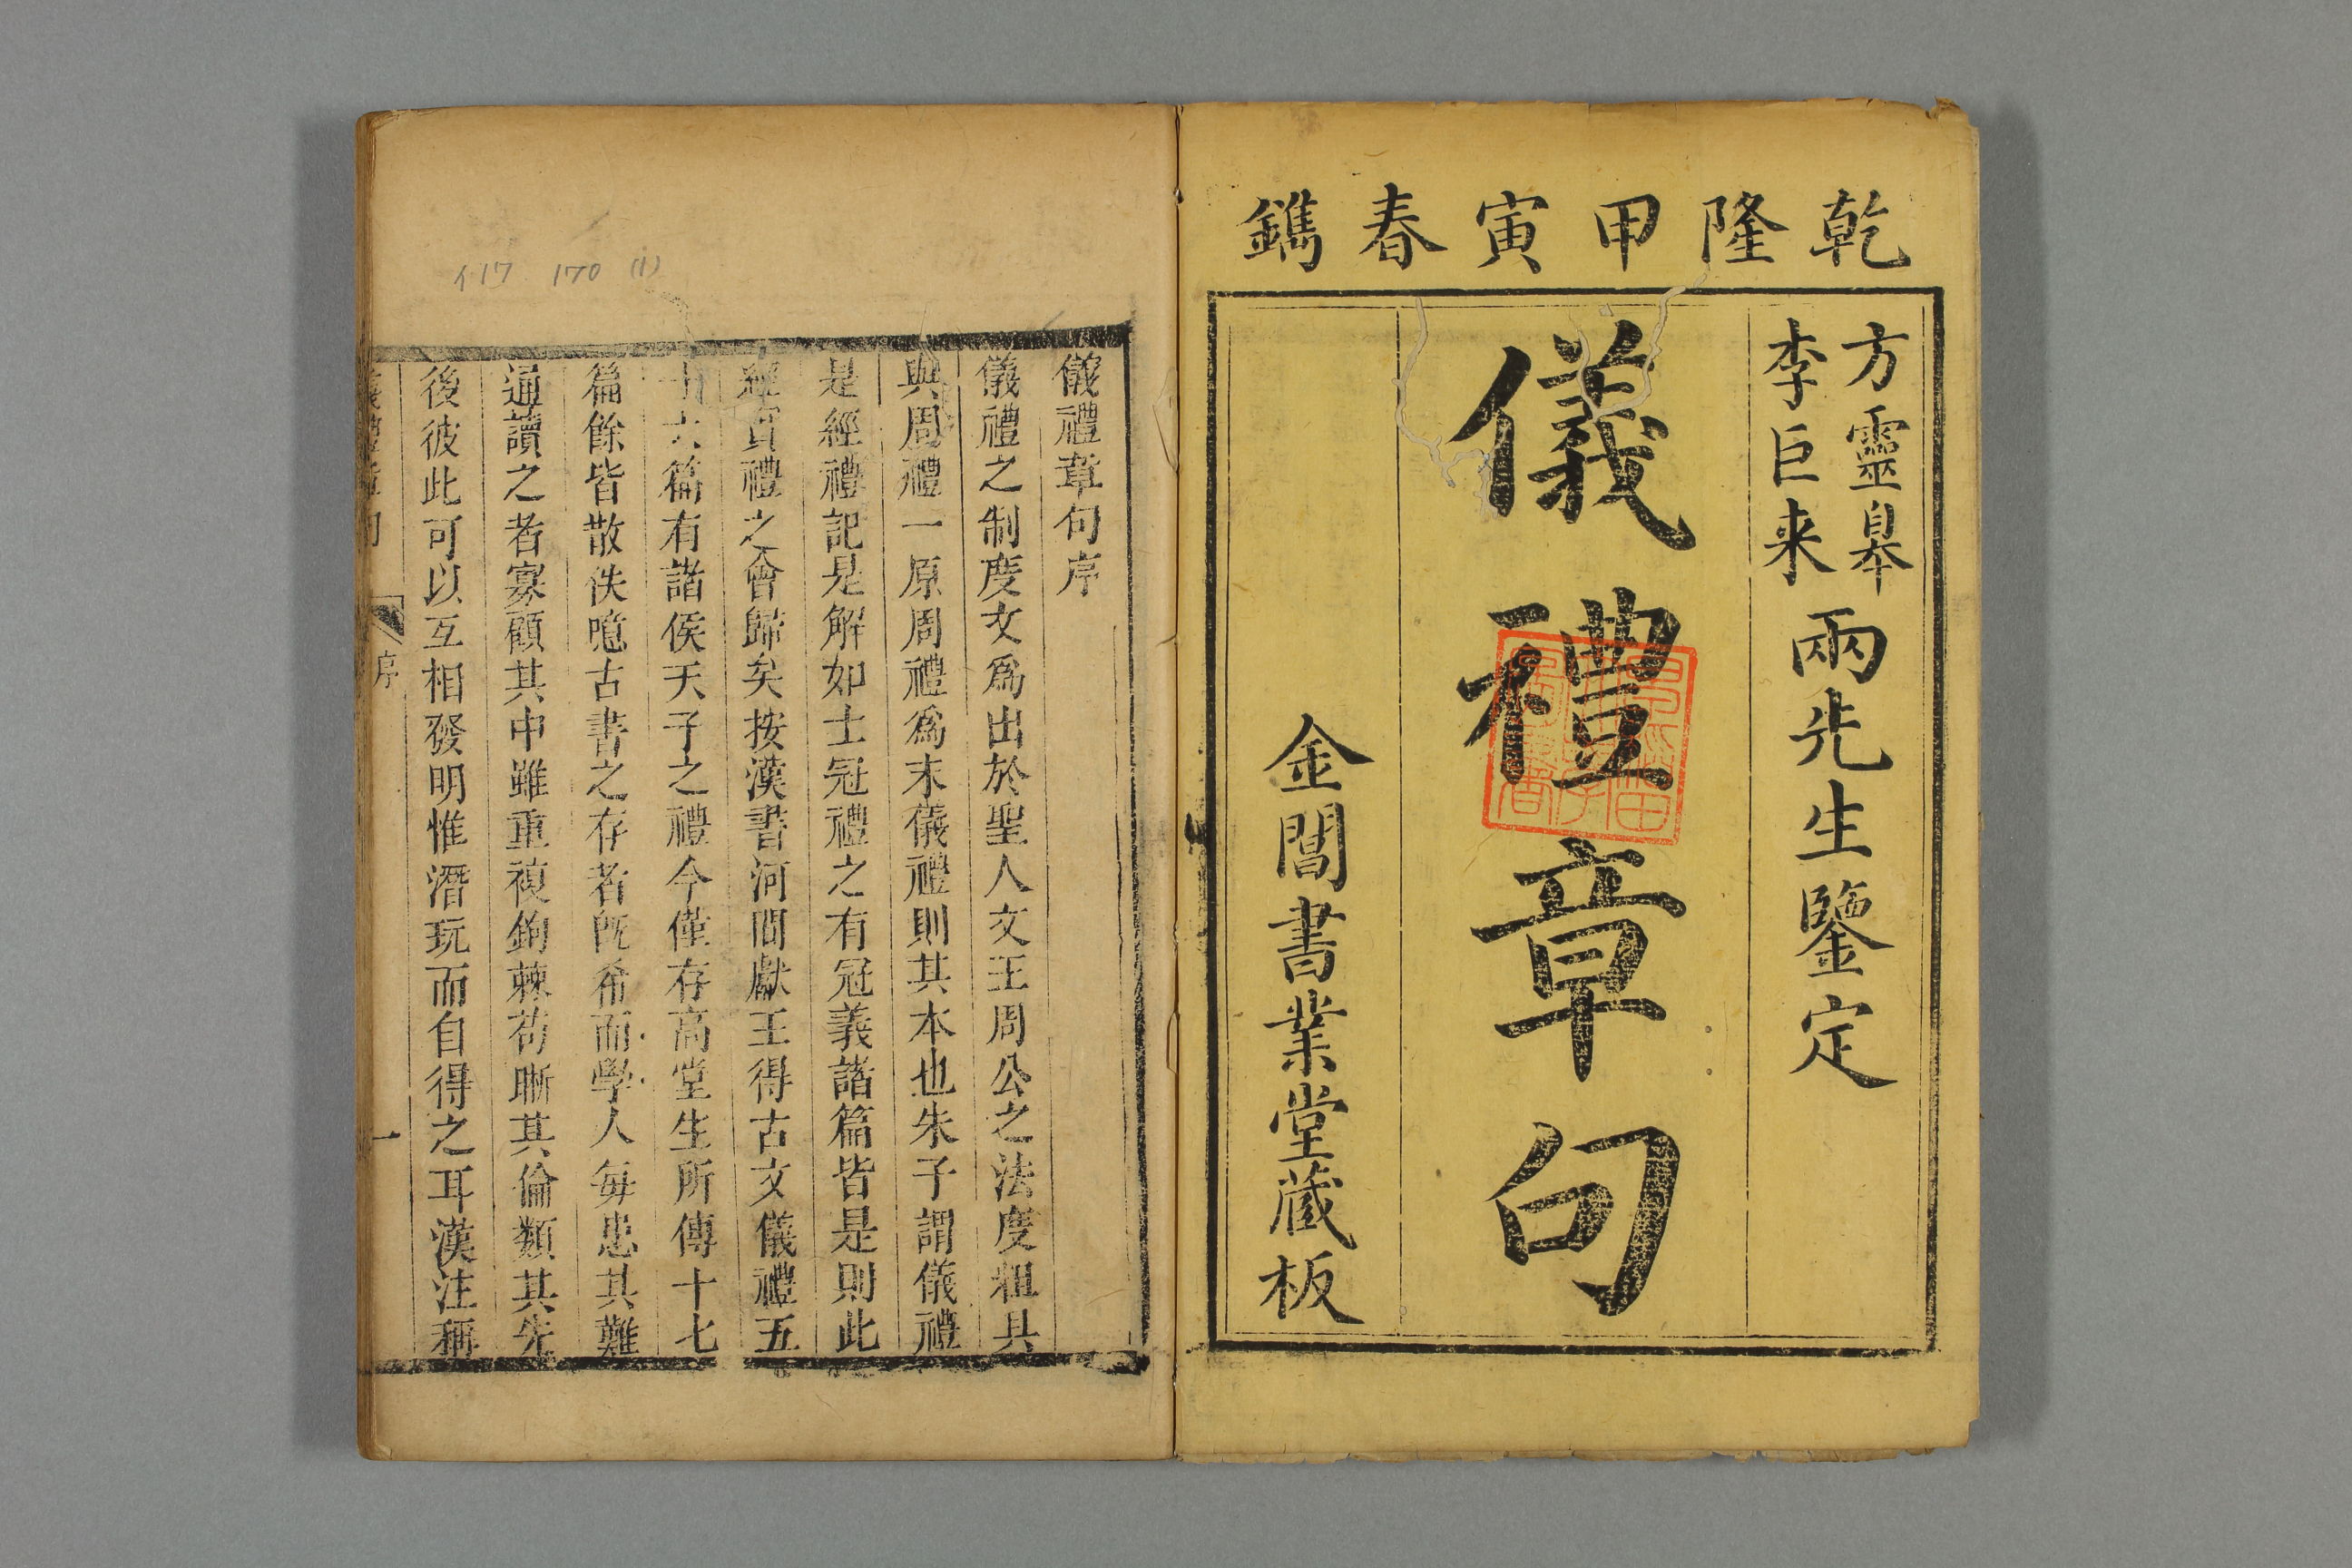 乾隆甲寅春鐫
方靈皋
李巨来
兩先生鑒定
儀禮章句
金閶書業堂蔵板
117 170 (1)
儀禮章句序
儀禮之制度文爲出於聖人文王周公之法度粗具
與周禮一原周禮爲末儀禮則其本也朱子謂儀禮
是經禮記是解如士冠禮之有冠義諸篇皆是則此
經實禮之會歸矣按漢書河間獻王得古文儀禮五
十六篇有諸侯天子之禮今僅存高堂生所傳十七
篇餘皆散佚噫古書之存者既希而學人每患其難
通讀之者寡顧其中雖重複鉤棘茍晰其倫類其先
後彼此可以互相發明惟潛玩而自得之耳漢注稱
儀禮章句
序
一